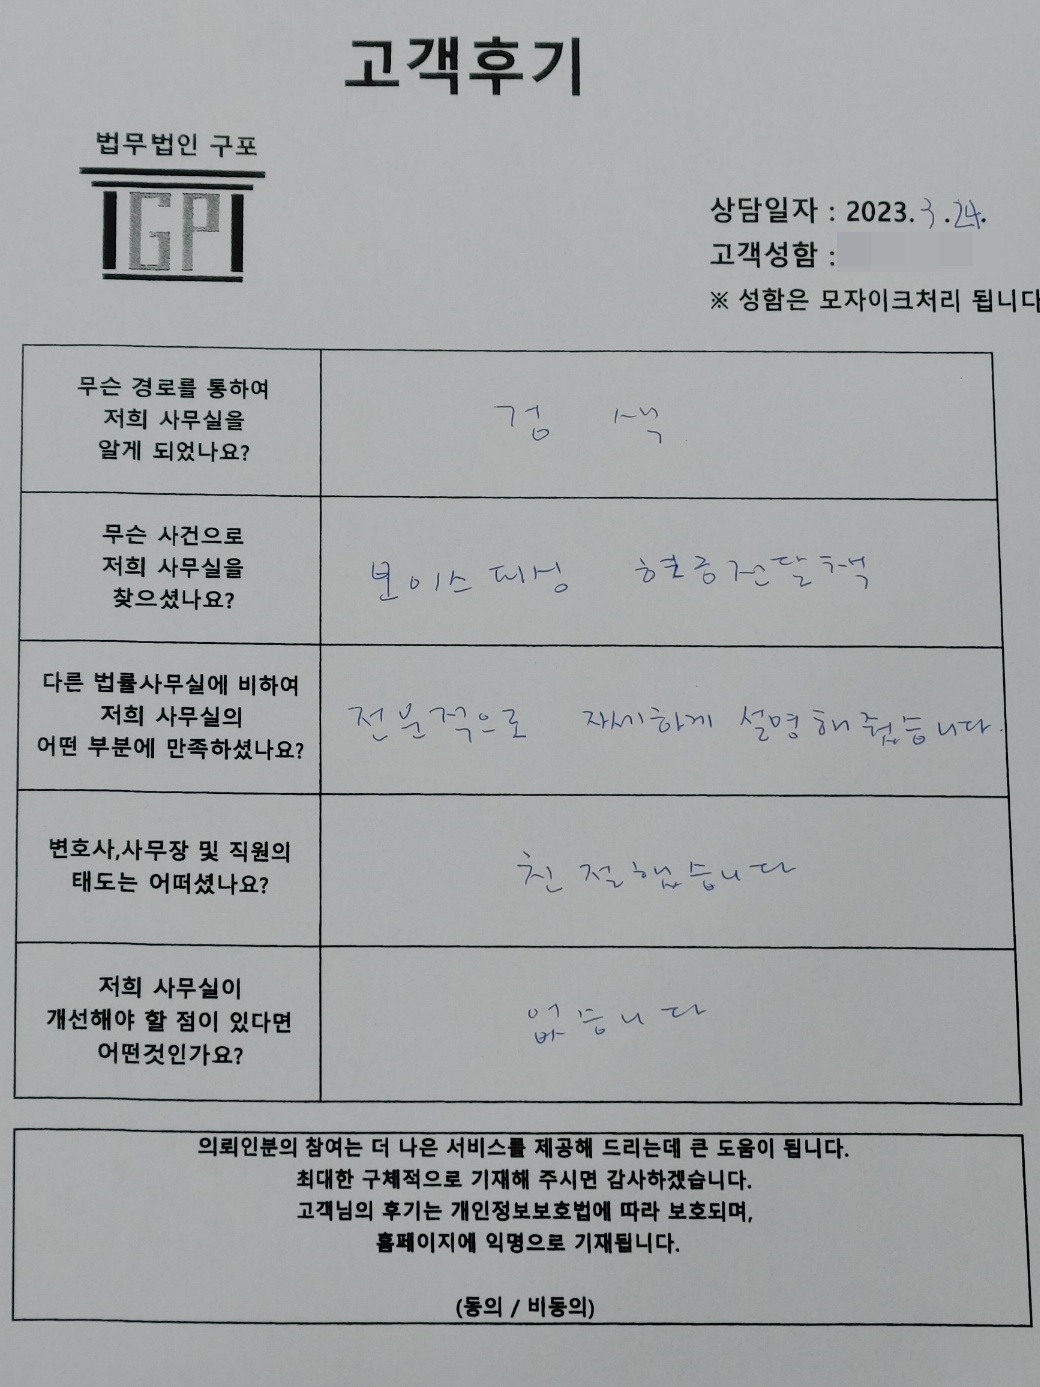 고객후기
법무법인 구포
GP
상담일자 : 2023. 3 . 24.
고객성함 :
※ 성함은 모자이크처리 됩니다
무슨 경로를 통하여
저희 사무실을
알게 되었나요?
검 색
무슨 사건으로
저희 사무실을
찾으셨나요?
보이스피싱 현금전달책
다른 법률사무실에 비하여
저희 사무실의
어떤 부분에 만족하셨나요?
전문적으로 자세하게 설명해줬습니다.
변호사,사무장 및 직원의
태도는 어떠셨나요?
친절했습니다
저희 사무실이
개선해야 할 점이 있다면
어떤것인가요?
없습니다
의뢰인분의 참여는 더 나은 서비스를 제공해 드리는데 큰 도움이 됩니다.
최대한 구체적으로 기재해 주시면 감사하겠습니다.
고객님의 후기는 개인정보보호법에 따라 보호되며,
홈페이지에 익명으로 기재됩니다.
(동의 / 비동의)